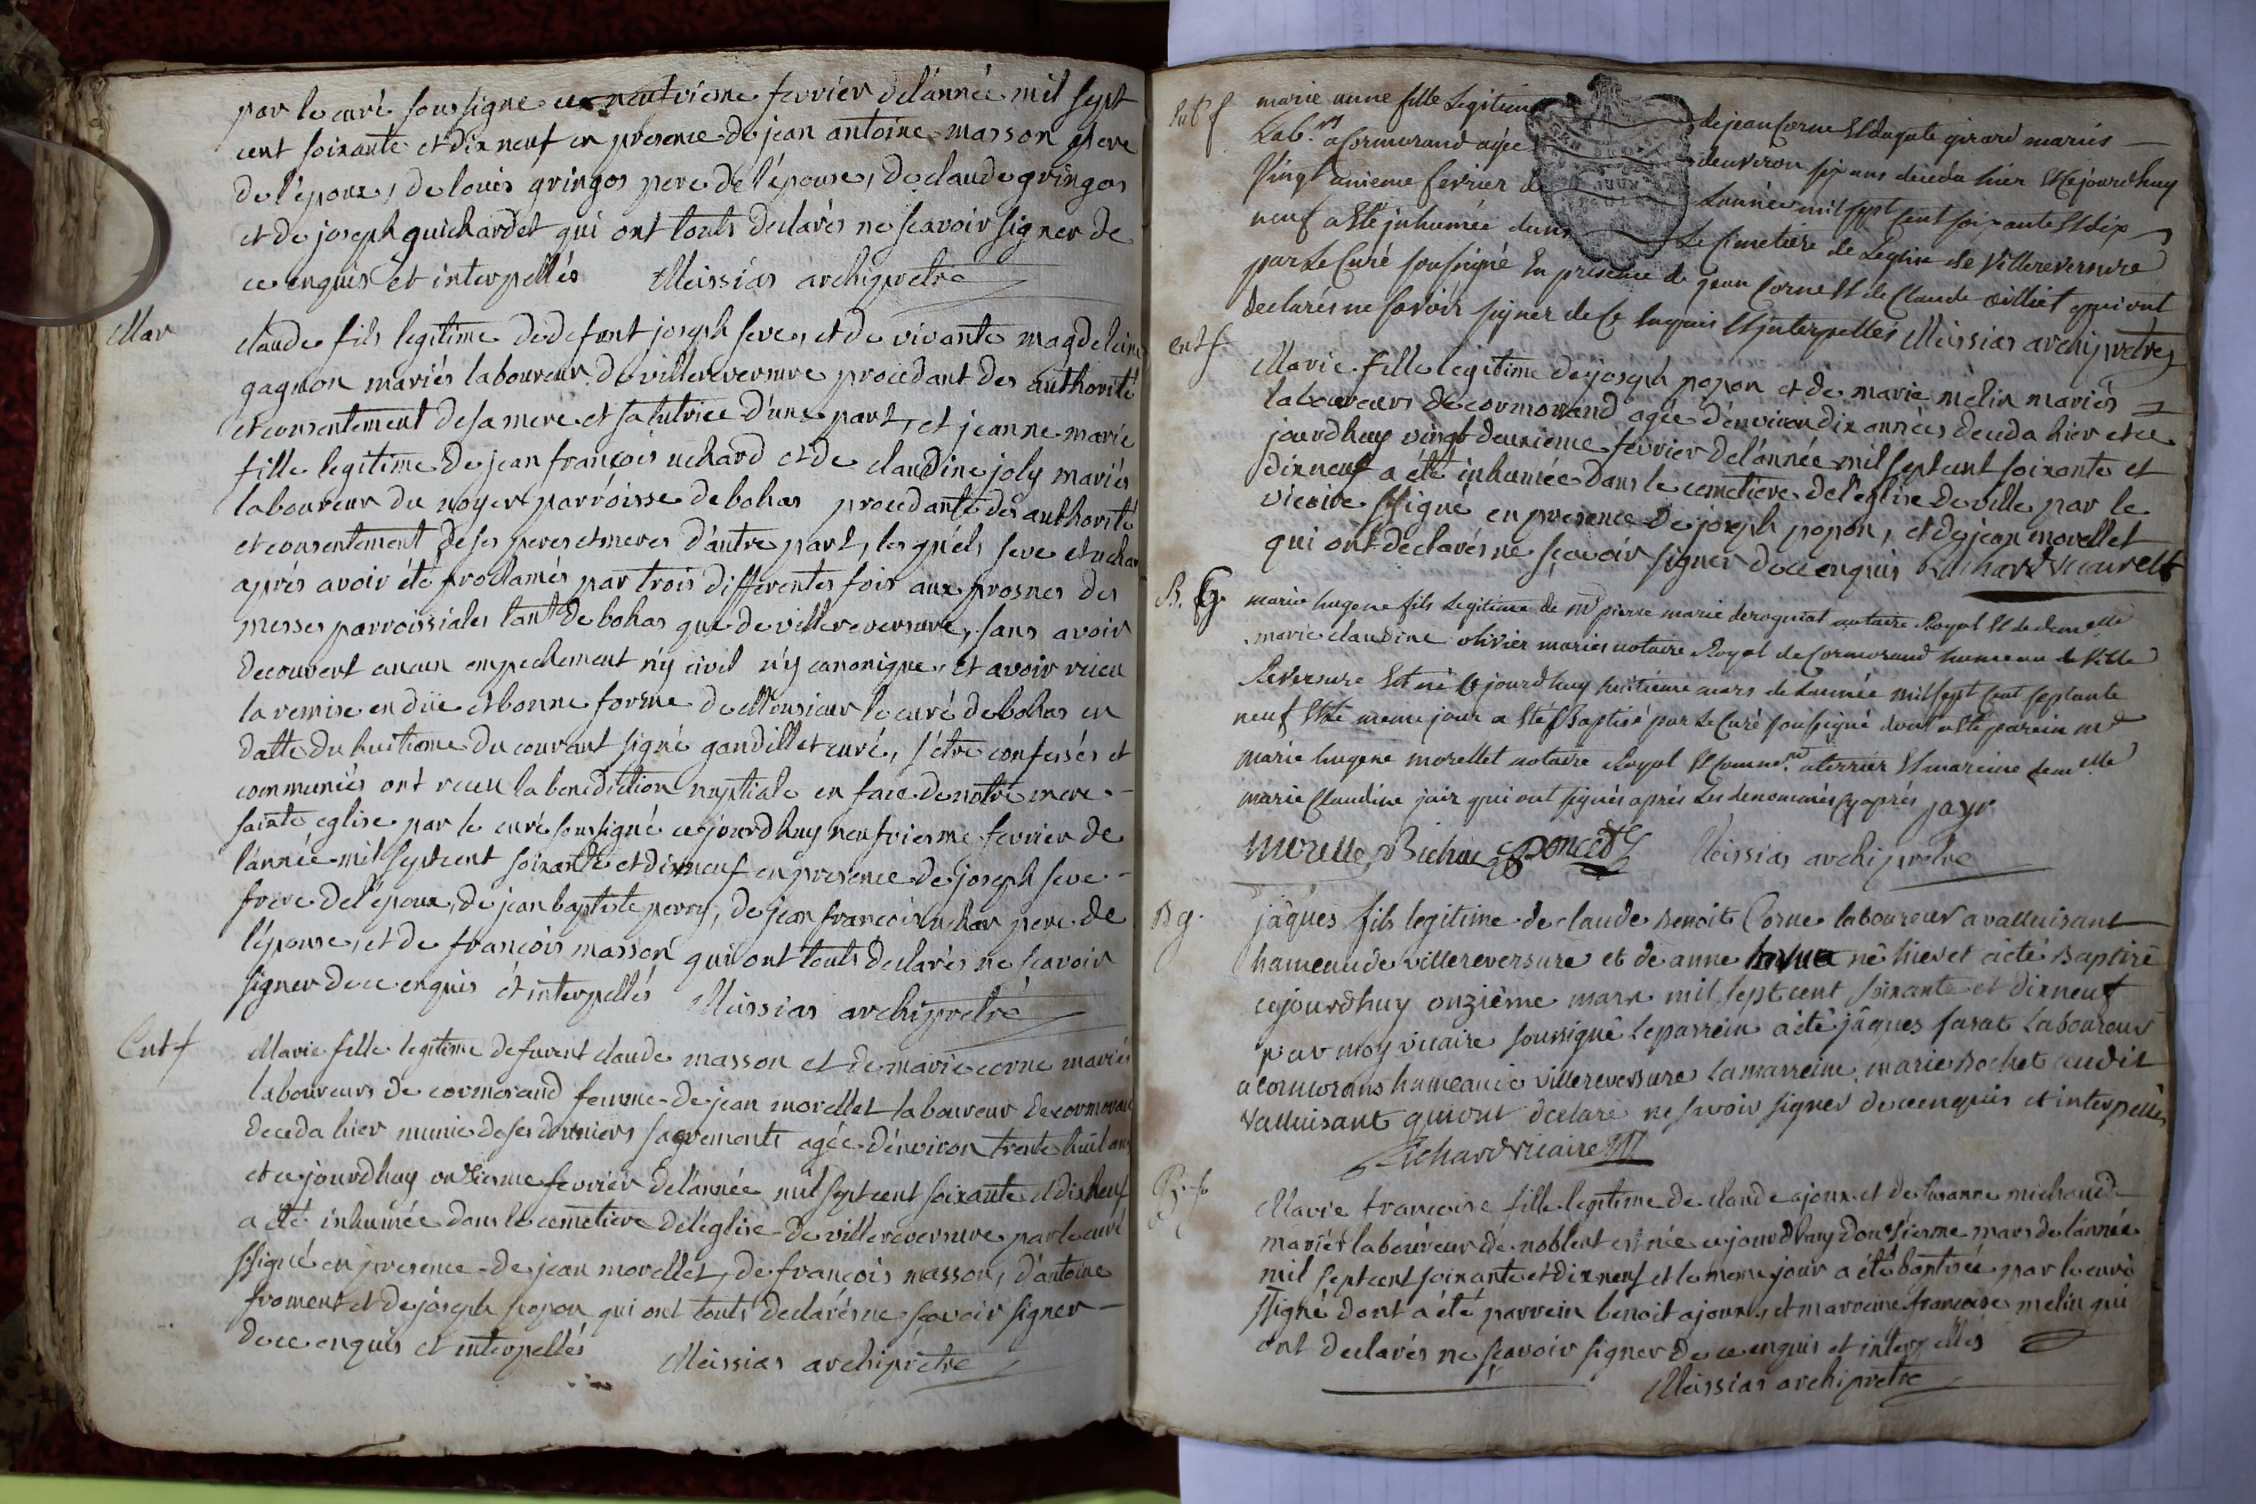 par le curé soussigné ce neufvieme fevrier de l'année mil sept
cent soixante et dix neuf en presence de jean antoine masson pere
de l'époux, de louis gringos pere de l'épouse, de claude gringos
et de joseph guichardet qui ont touts declarés ne scavoir signer de
ce enquis et interpellés Meissias archiprêtre
Mar
claude fils legitime de defunt joseph seve, et de vivante magdeleine
gagnon mariés laboureur de villereversure procedant des authorité
et consentement de sa mere et sa tutrice d'une part, et jeanne marie
fille legitime de jean françois uchard et de claudine joly mariés
laboureur du noyer parroisse de bohas procedante des authorité
et consentement de ses peres et meres d'autre part, lesquels seve et uchar
aprés avoir été proclamés par trois differentes fois aux prosnes des
messes parroissiales tant de bohas que de villereversure, sans avoir
decouvert aucun empechement n'y civil n'y canonique, et avoir reieu
la remise en düe et bonne forme de Monsieur le curé de bohas en
datte du huitieme du courant signé gandillet curé, s'être confessés et
communiés ont receu la benediction nuptiale en face de notre mere
sainte eglise par le curé soussigné ce jourdhuy neufvieme fevrier de
l'année mil sept cent soixante et dix neuf en presence de joseph seve
frere de l'époux, de jean baptiste perry, de jean francois uchar pere de
l'épouse, et de françois masson qui ont touts declarés ne scavoir
signer de ce enquis et interpellés Meissias archiprêtre
Ent f
Marie fille legitime de furent claude masson et de marie corne mariés
laboureurs de cormorand femme de jean morellet laboureur de cormorand
deceda hier munie de ses derniers sacrements agée d'environ trente huit ans
et ce jourdhuy onzieme fevrier de l'année mil sept cent soixante et dix neuf
a été inhumée dans le cemetiere de l'église de villereversure par le curé
ssigné en presence de jean morellet, de françois masson, d'antoine
froment et de joseph popon qui ont touts declarés ne scavoir signer
de ce enquis et interpellés Meissias archiprêtre
Ent f
marie anne fille Legitime de jean Corne Et dagate girard mariés
Lab.rs a Cormorand agée denviron six ans deceda hier Et Cejourdhuy
Vingt unieme fevrier de Lannée mil sept Cent soixante Et dix
neuf a Eté inhumée dans Le Cimetiere de Leglise de Villereversure
par Le Curé soussigné En presence de jean Corne Et de Claude qui ont
declarés ne savoir signer de Ce Enquis Et interpellés Meissias archiprêtre
ent f.
Marie fille legitime de joseph popon et de marie mélin mariés
laboureurs de cormorand agée d'environ dix années deceda hier et ce
jourdhuy vingt deuxieme fevrier de l'année mil sept cent soixante et
dix neuf a été inhumée dans le cemetiere de l'église de ville par le
vicaire ssigné en presence de joseph popon, et de jean morellet
qui ont declarés ne sçavoir signer de ce enquis
B. G.
marie hugene fils Legitime de m.r pierre marie deroguiat notaire Royal Et de dem.elle
marie claudine olivier mariés notaire Royal de Cormorand hameau de Ville
Reversure Est né Ce jourdhuy huitieme mars de Lannée mil sept Cent septante
neuf Et Le meme jour a Eté Baptisé par Le Curé soussigné dont a Eté parein m.r
marie hugene morellet notaire Royal Et Comm.re a terrier Et mareine dem.elle
marie Claudine jair qui ont signés après Les denommés Cy après jayr
Morelle Bichat Poncet Meissias archiprêtre
B g.
jâques fils legitime de claude Benoit Corne laboureur a valluisant
hameau de villereversure et de anne né hier et a été Baptisé
cejourdhuy onzième mars mil sept cent soixante et dix neuf
par moy vicaire soussigné le parrein a été jâques farat Laboureur
a cormorans hameau de villereversure La marreine marie Bochet audit
Valluisant qui ont declaré ne savoir signer de ce enquis et interpellés
Richard vicaire
B. f.
Marie francoise fille legitime de claude ajoux et de susanne michaud
mariés laboureur de noblent est née ce jourdhuy douzieme mars de l'année
mil sept cent soixante et dix neuf et le meme jour a été baptisée par le curé
ssigné dont a été parrein benoit ajoux, et marreine françoise melin qui
ont declarés ne sçavoir signer de ce enquis et interpellés
Meissias archiprêtre